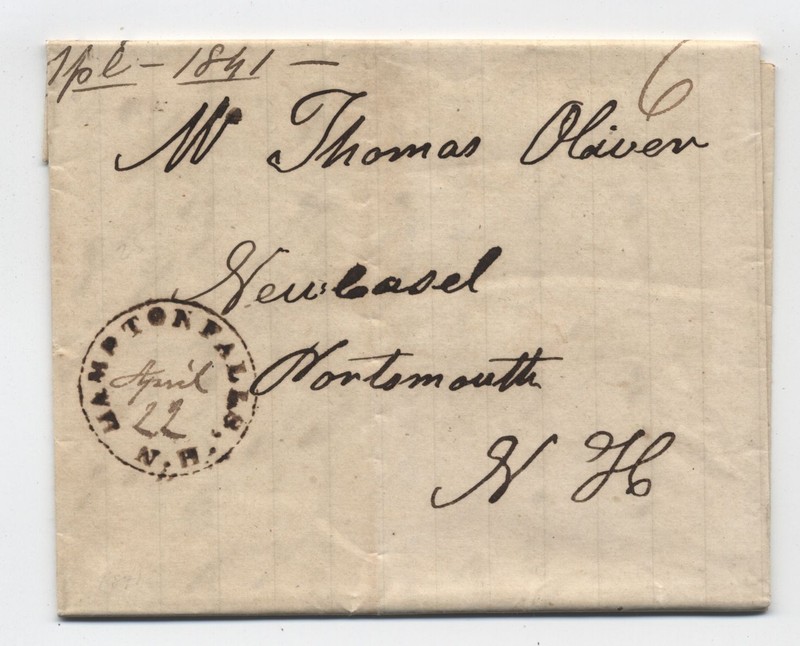 Apl - 1841 -
6
Mr Thomas Oliver
Newcasel
Portsmouth
N H
HAMPTON FALLS, N.H.
April
22